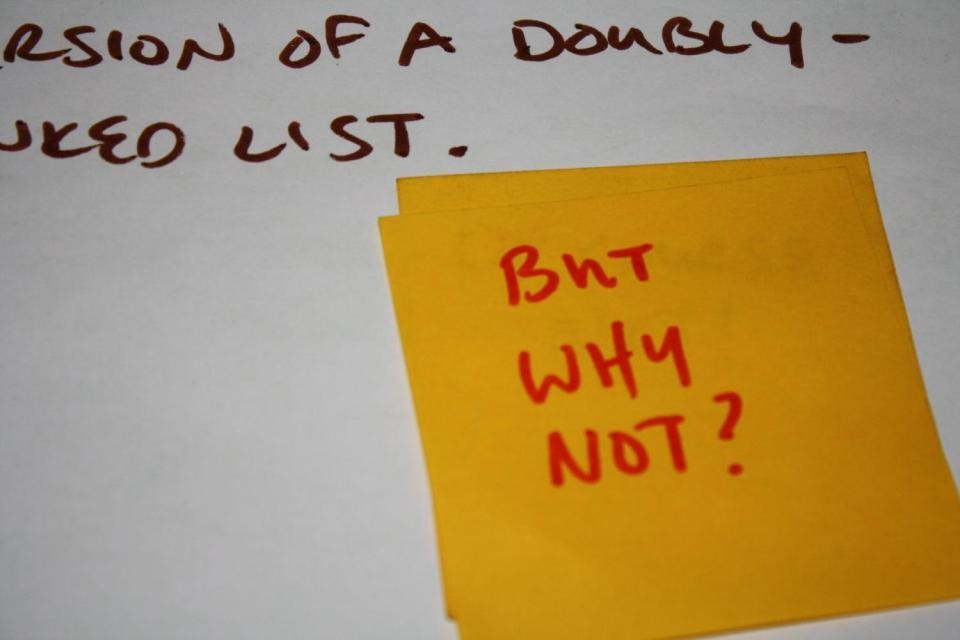 RSION OF A DOUBLY-
NKED LIST.
BUT
WHY
NOT?